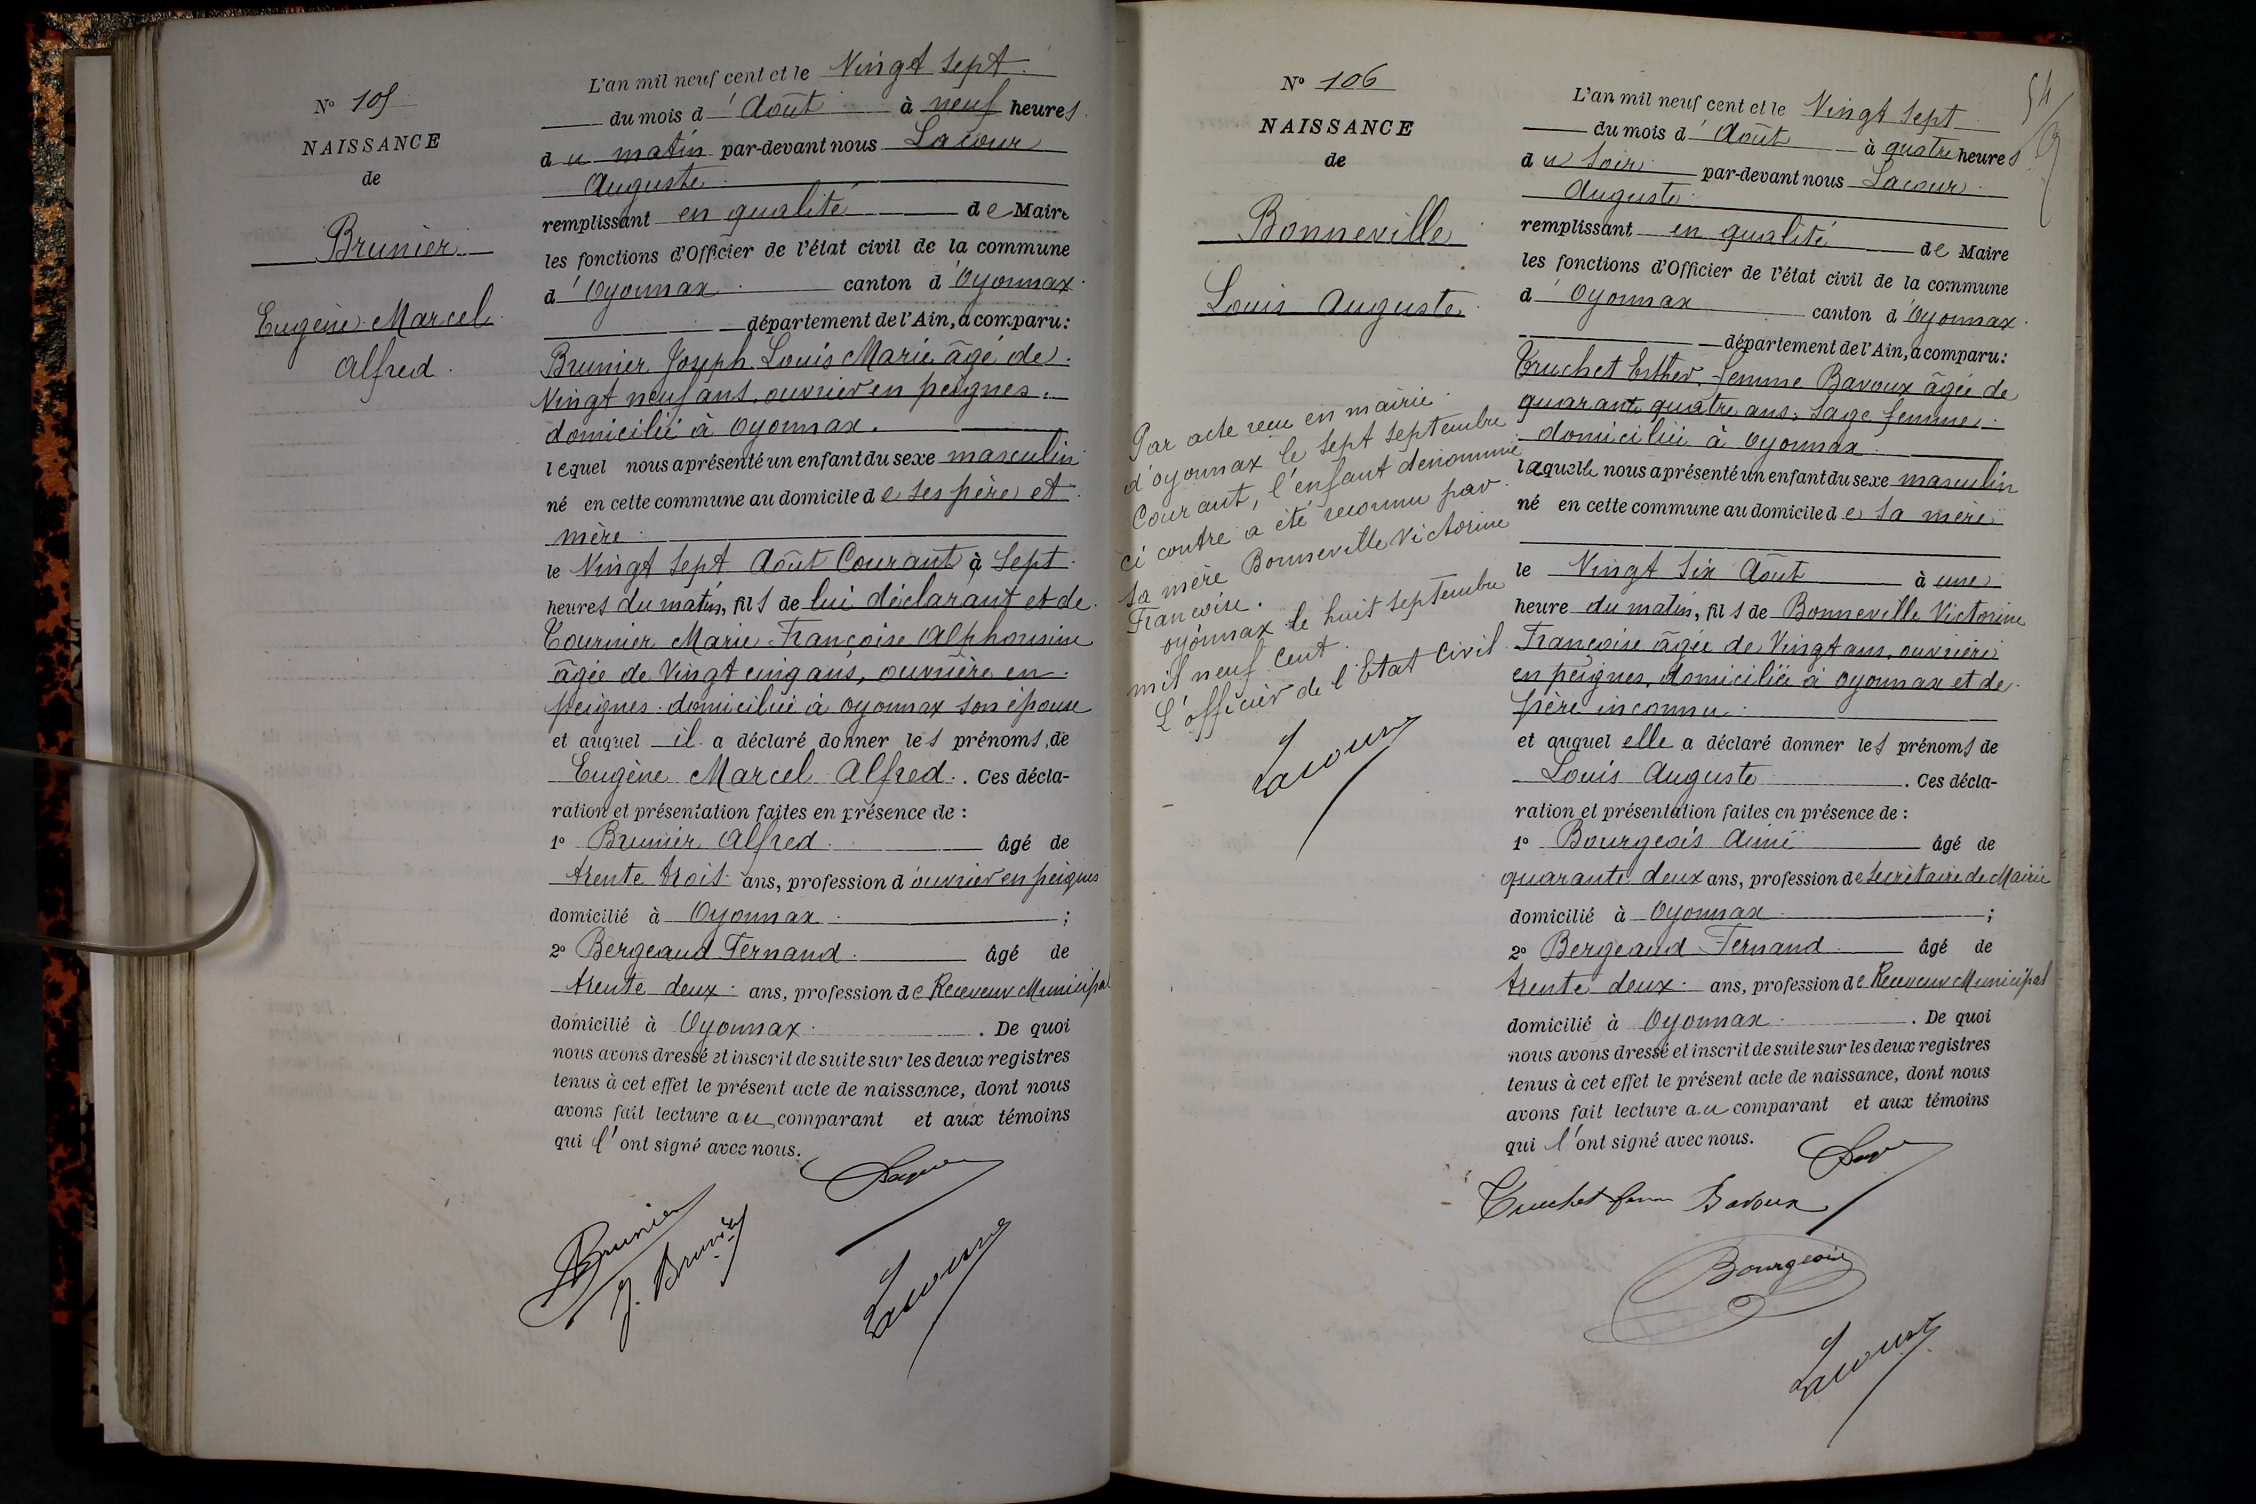 N° 105
NAISSANCE
de
Brunier
Eugène Marcel
Alfred
L'an mil neuf cent et le Vingt sept
du mois d'Août à neuf heures
du matin par-devant nous Lacour
Auguste
remplissant en qualité de Maire
les fonctions d'Officier de l'état civil de la commune
d'Oyonnax canton d'Oyonnax
département de l'Ain, a comparu:
Brunier Joseph Louis Marie âgé de
Vingt neuf ans, ouvrier en peignes,
domicilié à Oyonnax.
lequel nous a présenté un enfant du sexe masculin
né en cette commune au domicile de ses père et
mère
le Vingt sept Août Courant à Sept
heures du matin, fils de lui déclarant et de
Tournier Marie Françoise Alphonsine
âgée de Vingt cinq ans, ouvrière en
peignes domiciliée à Oyonnax son épouse
et auquel il a déclaré donner les prénoms de
Eugène Marcel Alfred. Ces décla-
ration et présentation faites en présence de :
1° Brunier Alfred âgé de
trente trois ans, profession d'ouvrier en peignes
domicilié à Oyonnax ;
2° Bergeaud Fernand âgé de
trente deux ans, profession de Receveur Municipal
domicilié à Oyonnax. De quoi
nous avons dressé et inscrit de suite sur les deux registres
tenus à cet effet le présent acte de naissance, dont nous
avons fait lecture au comparant et aux témoins
qui l'ont signé avec nous.
Brunier
J. Brunier
Lacour
54
N° 106
NAISSANCE
de
Bonneville
Louis Auguste
Par acte reçu en mairie
d'oyonnax le sept septembre
Courant, l'enfant dénommé
ci contre a été reconnu par
sa mère Bonneville Victorine
Françoise.
oyonnax le huit septembre
mil neuf cent.
L'officier de l'Etat Civil
Lacour
L'an mil neuf cent et le Vingt Sept
du mois d'Août à quatre heures
du Soir par-devant nous Lacour
Auguste
remplissant en qualité de Maire
les fonctions d'Officier de l'état civil de la commune
d'Oyonnax canton d'Oyonnax
département de l'Ain, a comparu:
Truchet Esther, femme Bavoux âgée de
quarante quatre ans, sage femme
domiciliée à Oyonnax
laquelle nous a présenté un enfant du sexe masculin
né en cette commune au domicile de sa mère
le Vingt Six Août à une
heure du matin, fils de Bonneville Victorine
Françoise âgée de Vingt ans, ouvrière
en peignes, domiciliée à Oyonnax et de
père inconnu
et auquel elle a déclaré donner les prénoms de
Louis Auguste. Ces décla-
ration et présentation faites en présence de :
1° Bourgeois Aimé âgé de
quarante deux ans, profession de Secrétaire de Mairie
domicilié à Oyonnax ;
2° Bergeaud Fernand âgé de
trente deux ans, profession de Receveur Municipal
domicilié à Oyonnax. De quoi
nous avons dressé et inscrit de suite sur les deux registres
tenus à cet effet le présent acte de naissance, dont nous
avons fait lecture au comparant et aux témoins
qui l'ont signé avec nous.
Truchet femme Bavoux
Bourgeois
Lacour